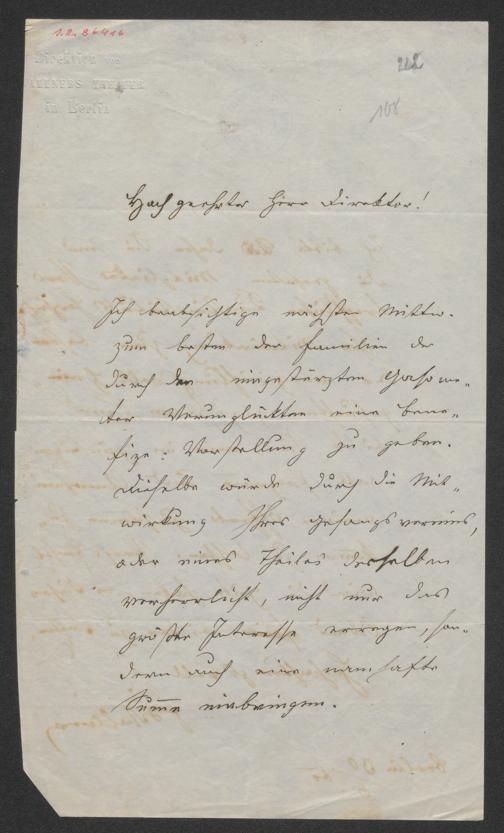 1.2. 86416
Direktion des
WALLNERS THEATER
in Berlin
108
Hochgeehrter Herr Direktor!
Ich beabsichtige nächsten Mittw.
zum besten der Familien der
durch den eingestürzten Gasome-
ter Verunglückten eine Bene-
fize-Vorstellung zu geben.
Dieselbe würde durch die Mit-
wirkung Ihres Gesangsvereines,
oder eines Theiles desselben
verherrlicht, nicht nur das
größte Interesse erregen, son-
dern auch eine namhafte
Summe einbringen.